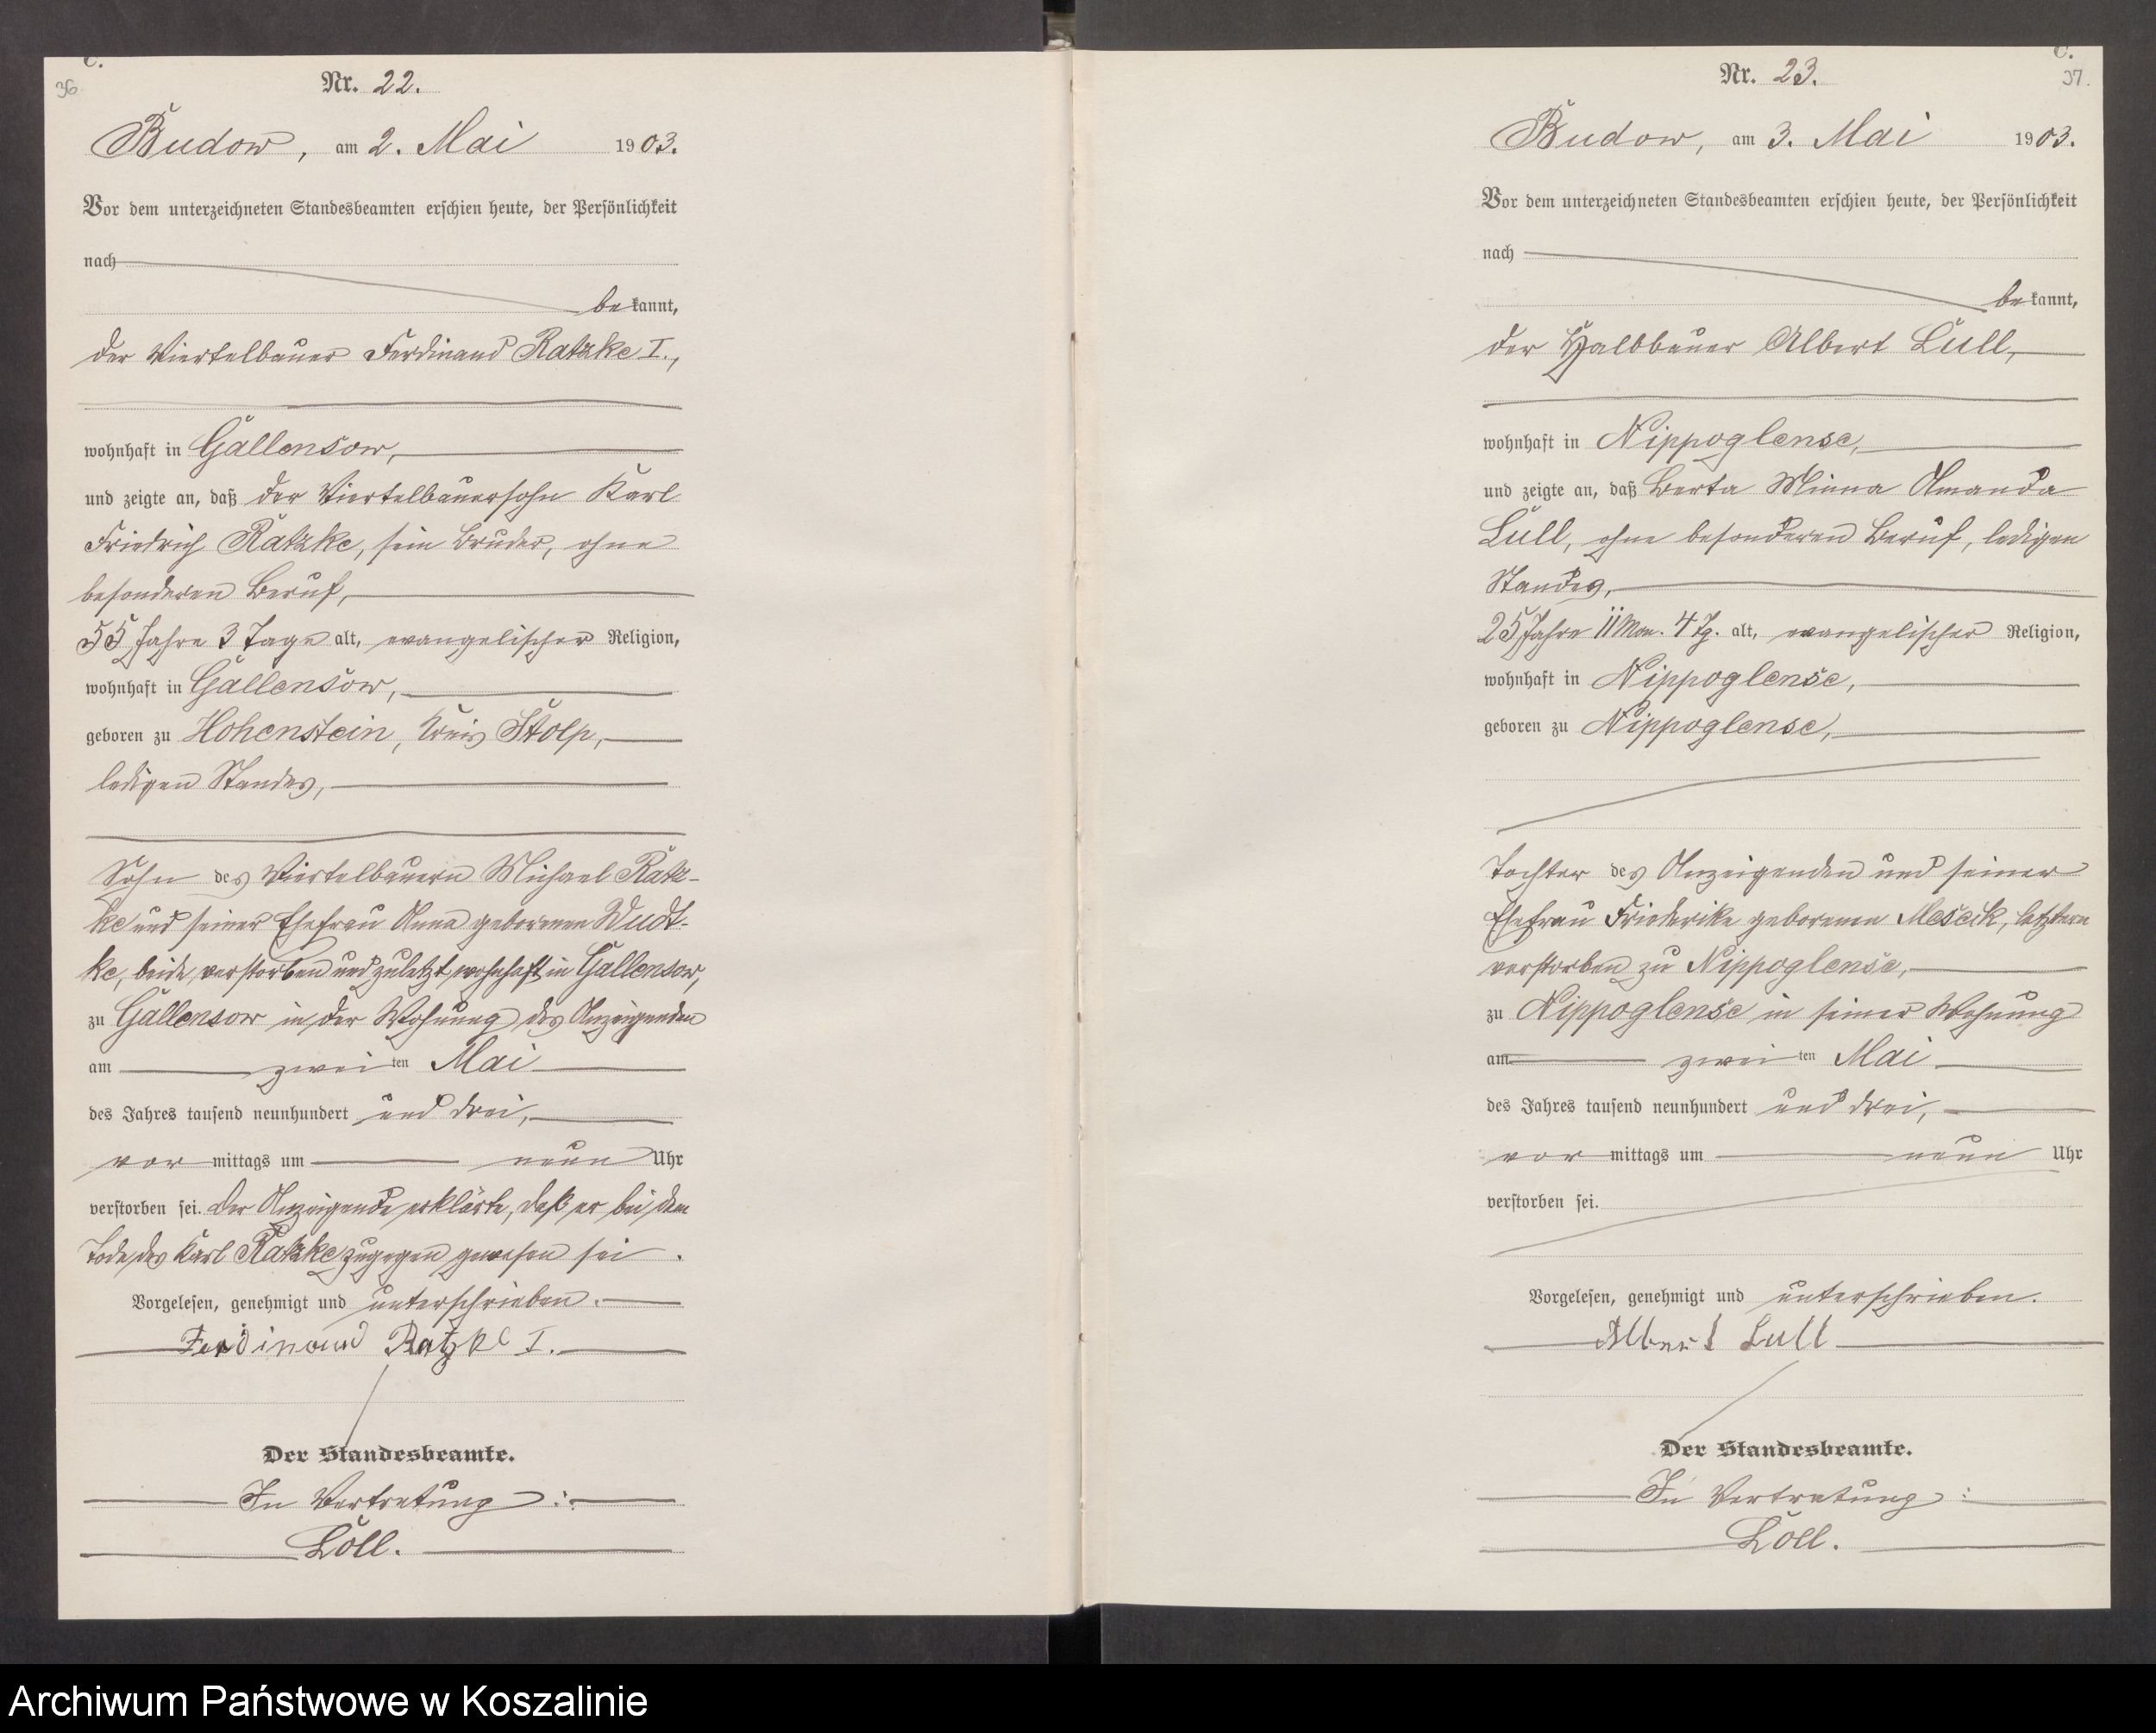 C.
36.
Nr. 22.
Budow, am 2. Mai 1903.
Vor dem unterzeichneten Standesbeamten erschien heute, der Persönlichkeit
nach
bekannt,
der Viertelbauer Ferdinand Ratzke I.,
wohnhaft in Gallensow,
und zeigte an, daß der Viertelbauersohn Karl
Friedrich Ratzke, sein Bruder, ohne
besonderen Beruf,
55 Jahre 3 Tage alt, evangelischer Religion,
wohnhaft in Gallensow,
geboren zu Hohenstein, Kreis Stolp,
ledigen Standes,
Sohn des Viertelbauern Michael Ratz-
ke und seiner Ehefrau Anna geborenen Wudt-
ke, beide verstorben und zuletzt wohnhaft in Gallensow,
zu Gallensow in der Wohnung des Anzeigenden
am zweiten Mai
des Jahres tausend neunhundert und drei,
vormittags um neun Uhr
verstorben sei. Der Anzeigende erklärte, daß er bei dem
Tode des Karl Ratzke zugegen gewesen sei.
Vorgelesen, genehmigt und unterschrieben.
Ferdinand Ratzke I.
Der Standesbeamte.
In Vertretung:
Löll.
C.
37.
Nr. 23.
Budow, am 3. Mai 1903.
Vor dem unterzeichneten Standesbeamten erschien heute, der Persönlichkeit
nach
bekannt,
der Halbbauer Albert Lull,
wohnhaft in Nippoglense,
und zeigte an, daß Berta Minna Amanda
Lull, ohne besonderen Beruf, ledigen
Standes,
25 Jahre 11 Mon. 4 Tg. alt, evangelischer Religion,
wohnhaft in Nippoglense,
geboren zu Nippoglense,
Tochter des Anzeigenden und seiner
Ehefrau Friederike geborenen Mescik, letztere
verstorben zu Nippoglense,
zu Nippoglense in seiner Wohnung
am zweiten Mai
des Jahres tausend neunhundert und drei,
vormittags um neun Uhr
verstorben sei.
Vorgelesen, genehmigt und unterschrieben.
Albert Lull
Der Standesbeamte.
In Vertretung:
Löll.
Archiwum Państwowe w Koszalinie